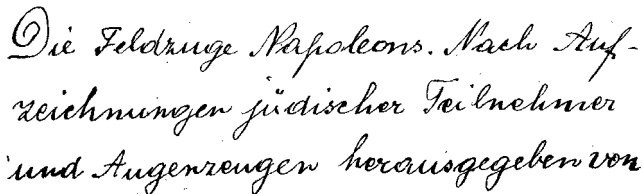 Die Feldzuge Napoleons. Nach Auf-
zeichnungen jüdischer Teilnehmer
und Augenzeugen herausgegeben von